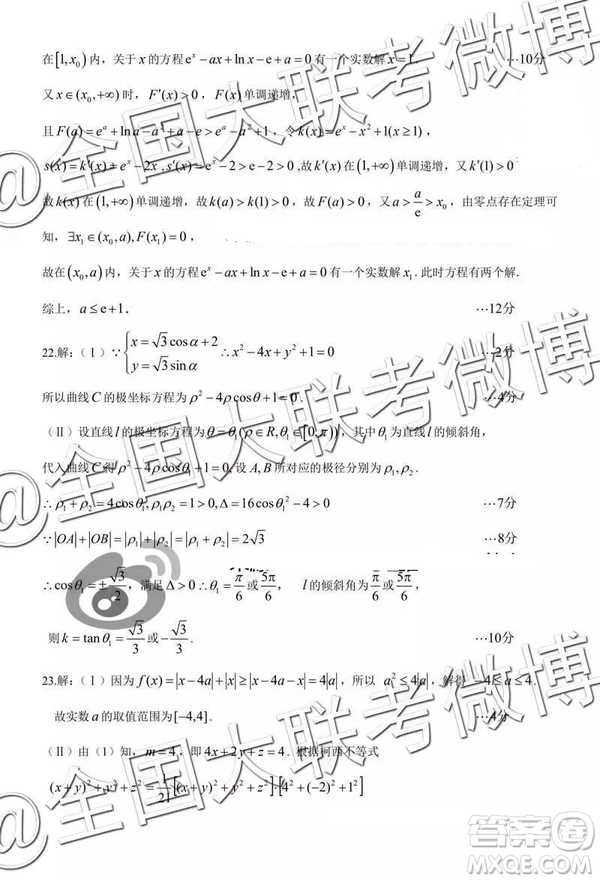 在[1,x₀)内，关于x的方程eˣ-ax+ln x-e+a=0有一个实数解x=1. ···10分
又x∈(x₀,+∞)时，F′(x)>0，F(x)单调递增，
且F(a)=eᵃ+ln a-a²+a-e>eᵃ-a²+1，令k(x)=eˣ-x²+1(x≥1)，
s(x)=k′(x)=eˣ-2x ,s′(x)=eˣ-2>e-2>0,故k′(x)在(1,+∞)单调递增，又k′(1)>0
故k(x)在(1,+∞)单调递增，故k(a)>k(1)>0，故F(a)>0，又a>a/e>x₀，由零点存在定理可
知，∃x₁∈(x₀,a),F(x₁)=0，
故在(x₀,a)内，关于x的方程eˣ-ax+ln x-e+a=0有一个实数解x₁. 此时方程有两个解.
综上，a≤e+1. ···12分
22.解：(Ⅰ)∵{x=√3cosα+2 y=√3sinα ∴x²-4x+y²+1=0 ···2分
所以曲线C的极坐标方程为ρ²-4ρcosθ+1=0. ···4分
(Ⅱ) 设直线l的极坐标方程为θ=θ₁(ρ∈R,θ₁∈[0,π))，其中θ₁为直线l的倾斜角，
代入曲线C得ρ²-4ρcosθ₁+1=0,设A,B所对应的极径分别为ρ₁,ρ₂.
∴ρ₁+ρ₂=4cosθ₁,ρ₁ρ₂=1>0,Δ=16cosθ₁²-4>0 ···7分
∵|OA|+|OB|=|ρ₁|+|ρ₂|=|ρ₁+ρ₂|=2√3 ···8分
∴cosθ₁=±√3/2，满足Δ>0∴θ₁=π/6或5π/6，l的倾斜角为π/6或5π/6，
则k=tanθ₁=√3/3或-√3/3. ···10分
23.解：(Ⅰ)因为f(x)=|x-4a|+|x|≥|x-4a-x|=4|a|，所以 a²≤4|a|，解得 -4≤a≤4.
故实数a的取值范围为[-4,4]. ···4分
(Ⅱ)由（1）知，m=4，即4x+2y+z=4. 根据柯西不等式
(x+y)²+y²+z²=1/21[(x+y)²+y²+z²]·[4²+(-2)²+1²]
@全国大联考微博
@全国大联考微博
@全国大联考微博
答案圈
MXQE.COM